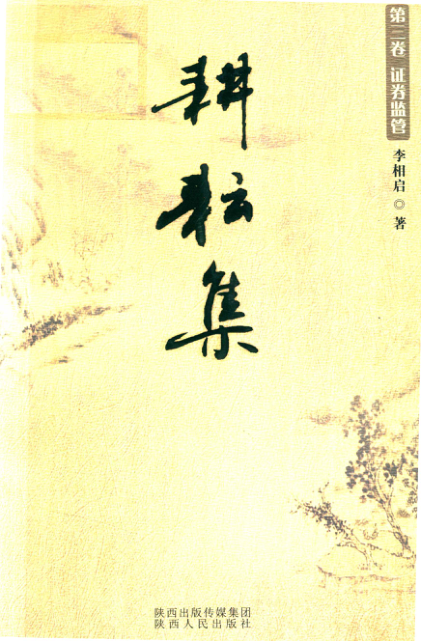 耕耘集
第三卷 证券监管
李相启◎著
陕西出版传媒集团
陕西人民出版社